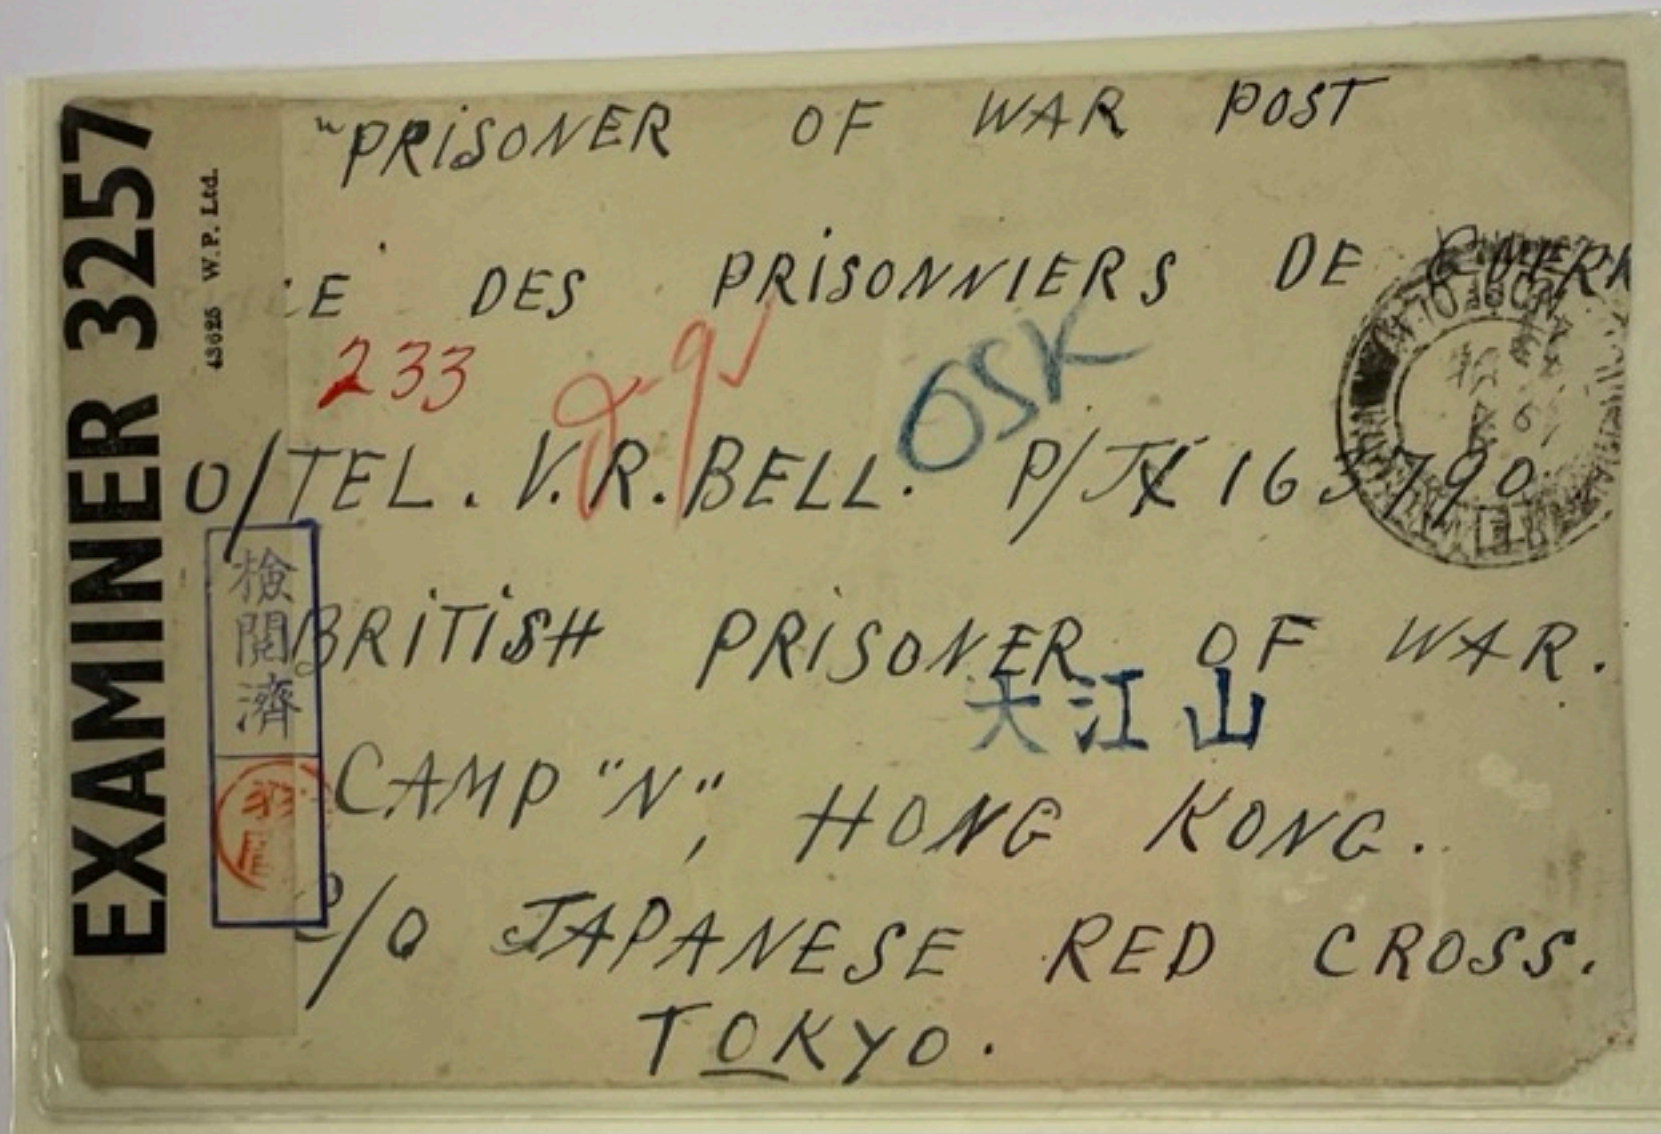 EXAMINER 3257
43625 W.P. Ltd.
"PRISONER OF WAR POST
CE DES PRISONNIERS DE GUERR
233
OSK
O/TEL. V.R.BELL. P/JX 163790
検閲済
BRITISH PRISONER OF WAR.
大江山
CAMP "N", HONG KONG.
C/O JAPANESE RED CROSS.
TOKYO.